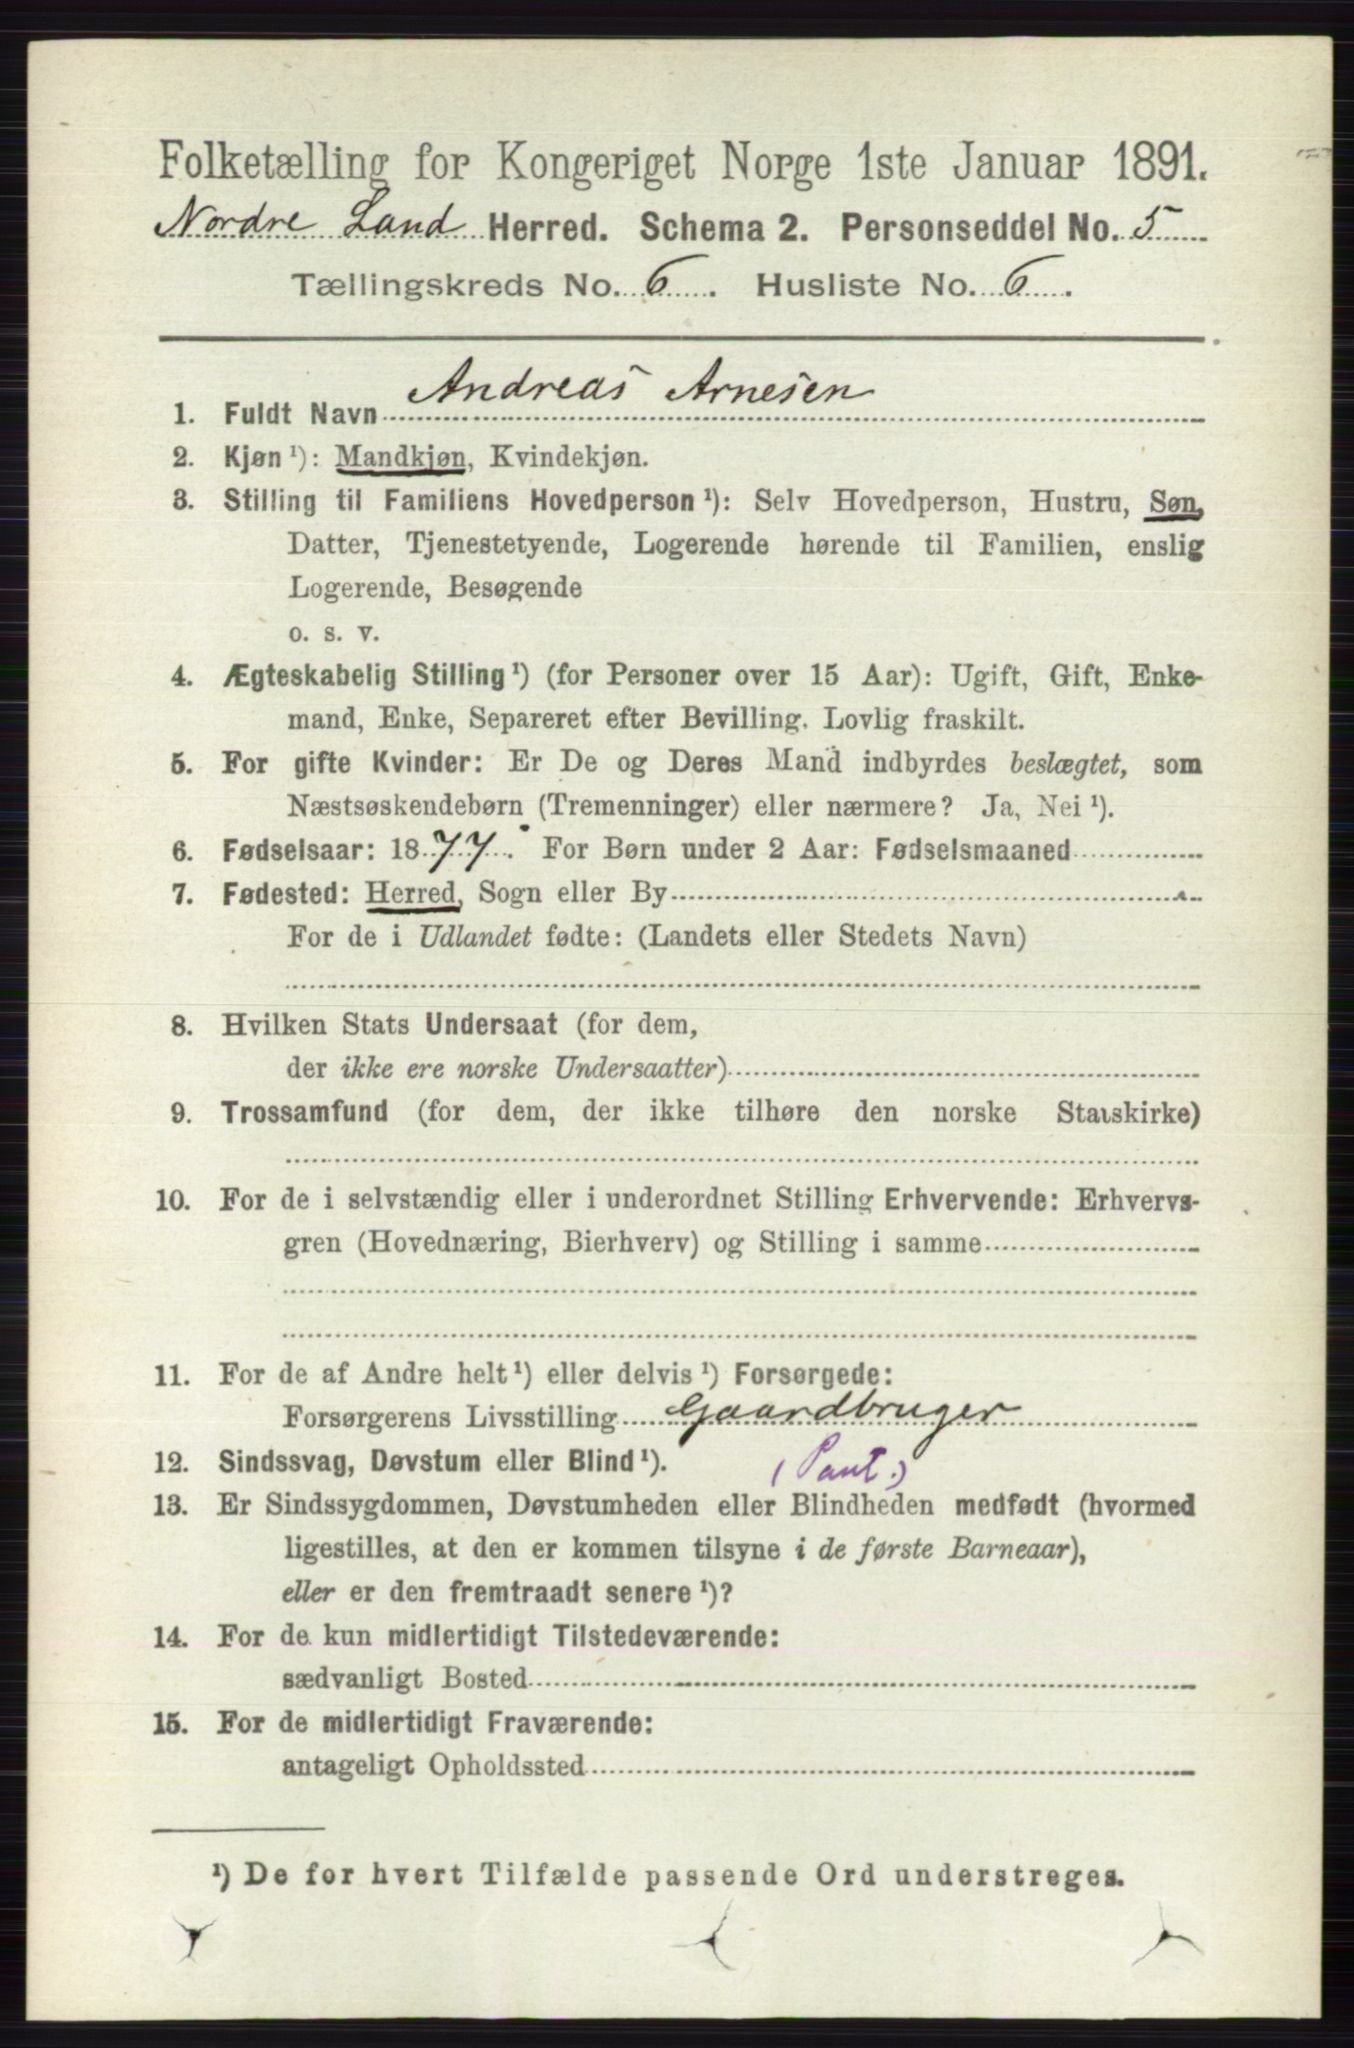 Folketælling for Kongeriget Norge 1ste Januar 1891.
Nordre Land Herred. Schema 2. Personseddel No. 5
Tællingskreds No. 6. Husliste No. 6.
1. Fuldt Navn Andreas Arnesen
2. Kjøn ¹): Mandkjøn, Kvindekjøn.
3. Stilling til Familiens Hovedperson ¹): Selv Hovedperson, Hustru, Søn,
Datter, Tjenestetyende, Logerende hørende til Familien, enslig
Logerende, Besøgende
o. s. v.
4. Ægteskabelig Stilling ¹) (for Personer over 15 Aar): Ugift, Gift, Enke-
mand, Enke, Separeret efter Bevilling. Lovlig fraskilt.
5. For gifte Kvinder: Er De og Deres Mand indbyrdes beslægtet, som
Næstsøskendebørn (Tremenninger) eller nærmere? Ja, Nei ¹).
6. Fødselsaar: 1877. For Børn under 2 Aar: Fødselsmaaned
7. Fødested: Herred, Sogn eller By
For de i Udlandet fødte: (Landets eller Stedets Navn)
8. Hvilken Stats Undersaat (for dem,
der ikke ere norske Undersaatter)
9. Trossamfund (for dem, der ikke tilhøre den norske Statskirke)
10. For de i selvstændig eller i underordnet Stilling Erhvervende: Erhvervs-
gren (Hovednæring, Bierhverv) og Stilling i samme
11. For de af Andre helt ¹) eller delvis ¹) Forsørgede:
Forsørgerens Livsstilling Gaardbruger
12. Sindssvag, Døvstum eller Blind ¹). 
13. Er Sindssygdommen, Døvstumheden eller Blindheden medfødt (hvormed
ligestilles, at den er kommen tilsyne i de første Barneaar),
eller er den fremtraadt senere ¹)?
14. For de kun midlertidigt Tilstedeværende:
sædvanligt Bosted
15. For de midlertidigt Fraværende:
antageligt Opholdssted
¹) De for hvert Tilfælde passende Ord understreges.